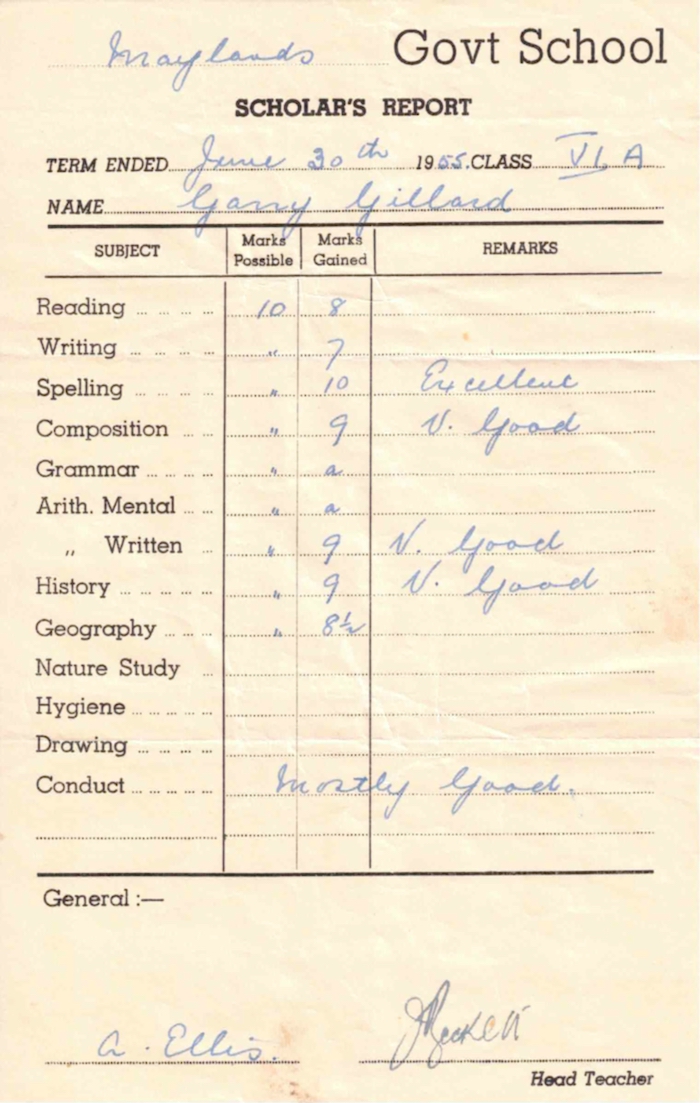 Maylands Govt School
SCHOLAR'S REPORT
TERM ENDED June 30th 1955. CLASS VI A
NAME Garry Gillard
SUBJECT Marks Possible Marks Gained REMARKS
Reading 10 8
Writing " 7
Spelling " 10 Excellent
Composition " 9 V. Good
Grammar " a
Arith. Mental " a
" Written " 9 V. Good
History " 9 V. Good
Geography " 8½
Nature Study
Hygiene
Drawing
Conduct Mostly Good.
General :—
A. Ellis.
Head Teacher